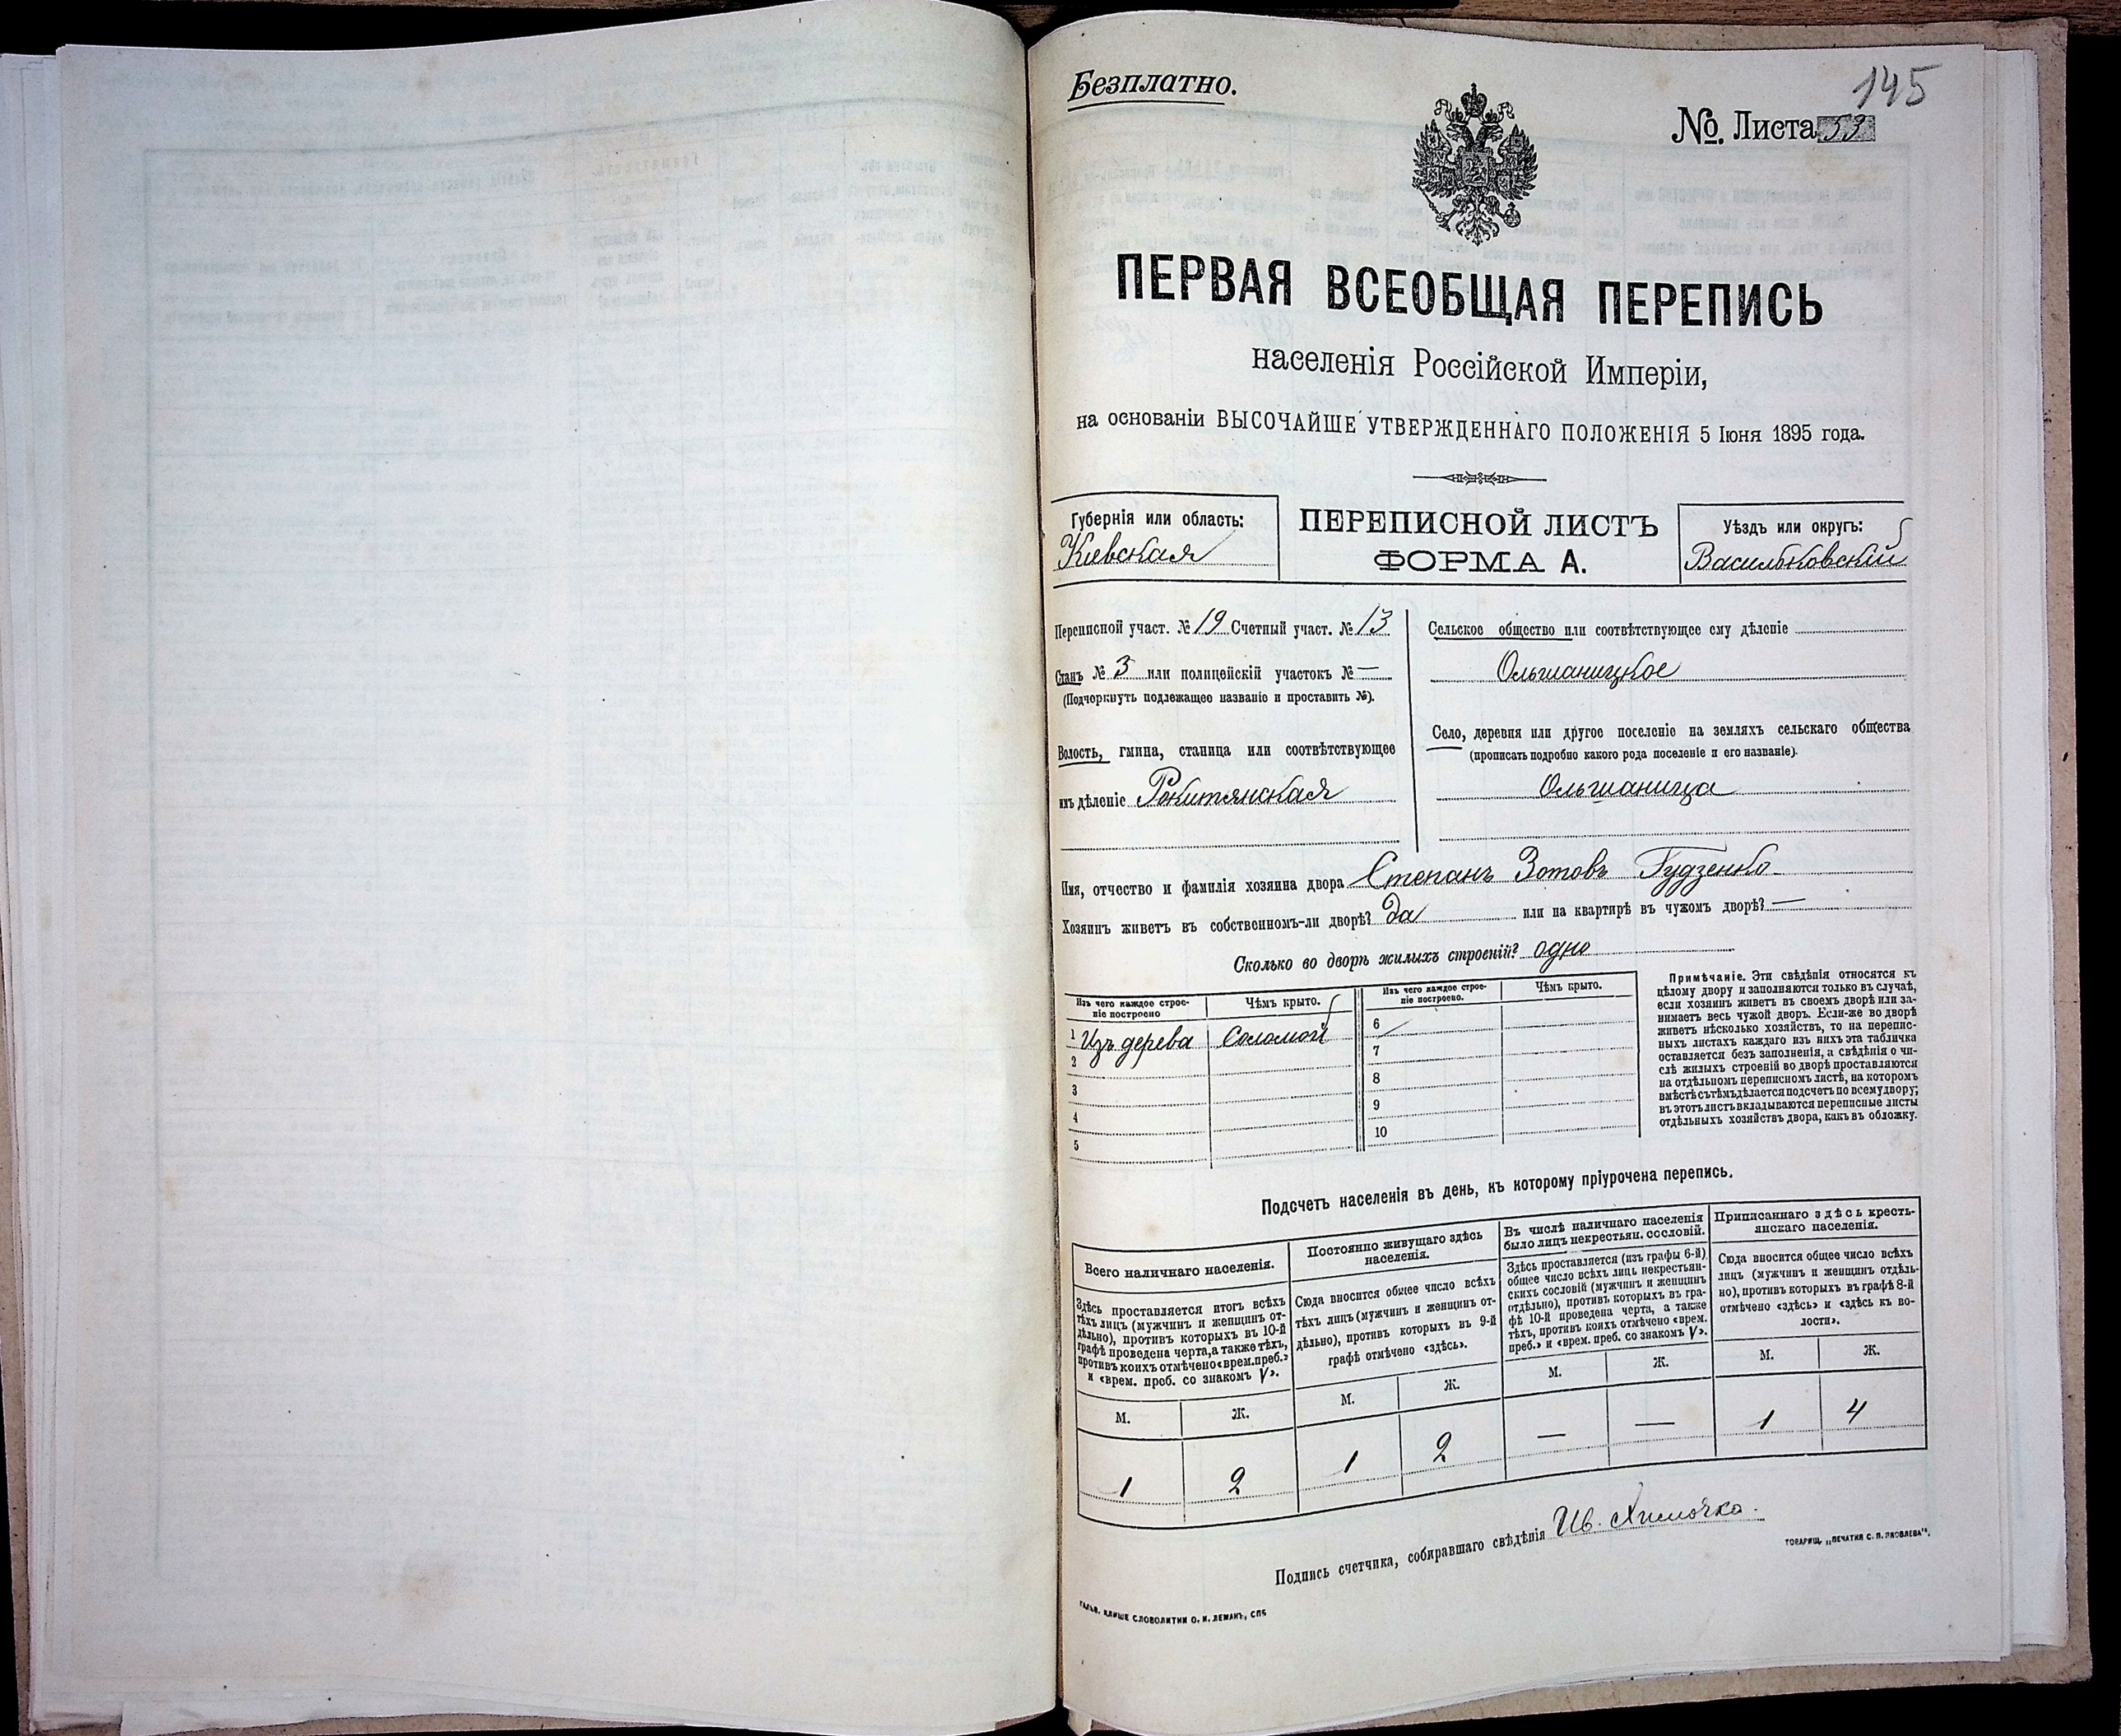 Безплатно.
145
№. Листа 53
ПЕРВАЯ ВСЕОБЩАЯ ПЕРЕПИСЬ
населенія Россійской Имперіи,
на основаніи ВЫСОЧАЙШЕ УТВЕРЖДЕННАГО ПОЛОЖЕНІЯ 5 Іюня 1895 года.
Губернія или область:
Кіевская
ПЕРЕПИСНОЙ ЛИСТЪ
ФОРМА А.
Уѣздъ или округъ:
Васильковскій
Переписной участ. № 19 Счетный участ. № 13
Станъ № 3 или полицейскій участокъ № —
(Подчеркнуть подлежащее названіе и проставить №).
Волость, гмина, станица или соотвѣтствующее
ихъ дѣленіе Рокитянская
Сельское общество или соотвѣтствующее ему дѣленіе
Ольшаницкое
Село, деревня или другое поселеніе на земляхъ сельскаго общества
(прописать подробно какого рода поселеніе и его названіе).
Ольшаница
Имя, отчество и фамилія хозяина двора Степанъ Зотовъ Гудзенко
Хозяинъ живетъ въ собственномъ-ли дворѣ? Да или на квартирѣ въ чужомъ дворѣ? —
Сколько во дворѣ жилыхъ строеній? одно
Изъ чего каждое строе-
ніе построено
Чѣмъ крыто.
1 Изъ дерева Соломой
2
3
4
5
Изъ чего каждое строе-
ніе построено.
Чѣмъ крыто.
6
7
8
9
10
Примѣчаніе. Эти свѣдѣнія относятся къ
цѣлому двору и заполняются только въ случаѣ,
если хозяинъ живетъ въ своемъ дворѣ или за-
нимаетъ весь чужой дворъ. Если-же во дворѣ
живетъ нѣсколько хозяйствъ, то на перепис-
ныхъ листахъ каждаго изъ нихъ эта табличка
оставляется безъ заполненія, а свѣдѣнія о чи-
слѣ жилыхъ строеній во дворѣ проставляются
на отдѣльномъ переписномъ листѣ, на которомъ
вмѣстѣ съ тѣмъ дѣлается подсчетъ по всему двору;
въ этотъ листъ вкладываются переписные листы
отдѣльныхъ хозяйствъ двора, какъ въ обложку.
Подсчетъ населенія въ день, къ которому пріурочена перепись.
Всего наличнаго населенія.
Здѣсь проставляется итогъ всѣхъ
тѣхъ лицъ (мужчинъ и женщинъ от-
дѣльно), противъ которыхъ въ 10-й
графѣ проведена черта, а также тѣхъ,
противъ коихъ отмѣчено «врем. преб.»
и «врем. преб. со знакомъ V».
М. Ж.
1 2
Постоянно живущаго здѣсь
населенія.
Сюда вносится общее число всѣхъ
тѣхъ лицъ (мужчинъ и женщинъ от-
дѣльно), противъ которыхъ въ 9-й
графѣ отмѣчено «здѣсь».
М. Ж.
1 2
Въ числѣ наличнаго населенія
было лицъ некрестьян. сословій.
Здѣсь проставляется (изъ графы 6-й)
общее число всѣхъ лицъ некрестьян-
скихъ сословій (мужчинъ и женщинъ
отдѣльно), противъ которыхъ въ гра-
фѣ 10-й проведена черта, а также
тѣхъ, противъ коихъ отмѣчено «врем.
преб.» и «врем. преб. со знакомъ V».
М. Ж.
— —
Приписаннаго здѣсь кресть-
янскаго населенія.
Сюда вносится общее число всѣхъ
лицъ (мужчинъ и женщинъ отдѣль-
но), противъ которыхъ въ графѣ 8-й
отмѣчено «здѣсь» и «здѣсь къ во-
лости».
М. Ж.
1 4
Подпись счетчика, собиравшаго свѣдѣнія Ив.
ТОВАРИЩ. „ПЕЧАТНЯ С. П. ЯКОВЛЕВА“.
ГАЛЬВ. КЛИШЕ СЛОВОЛИТНИ О. И. ЛЕМАНЪ, СПБ